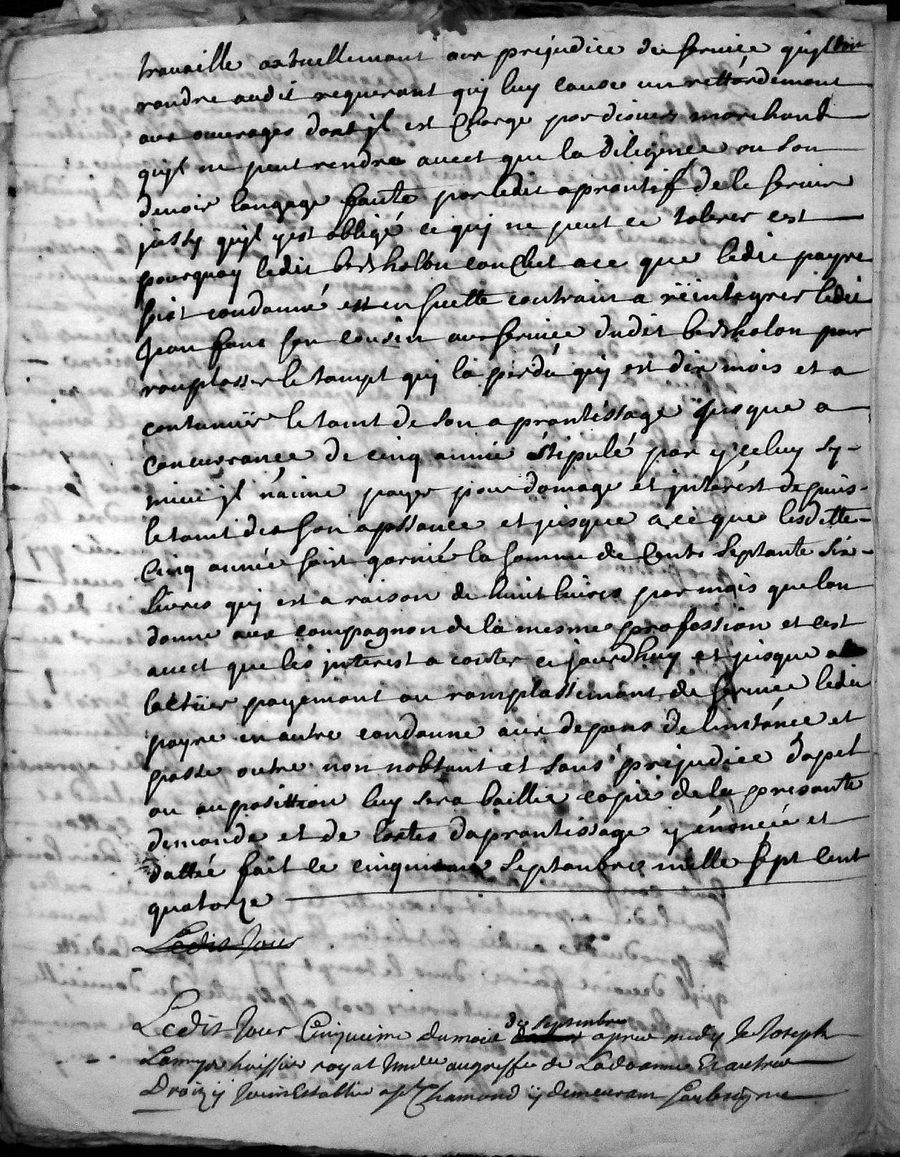 travaille actuellemant aux prejudice du service quyl doit
randre audit requerant quy luy cause un rettardement
aux ouvrages dont jl est Charge par divers marchand
quyl ne peut rendre avect que la diligence ou son
devoir langage faute par ledit aprontif de le servir
jassy quyl yest obligé ce quy ne peut ce tolerer est
pourquoy ledit bertholon conclut a ce que ledit payre
soit condamné est en suette contrain a reintegrer ledit
Jean son cousin aux service dudit bertholon pour
ramplasser le tampt quy la perdu quy est dix mois et a
contanuer le tamt de son aprontissage jusque a
concurrance de cinq année stipulé par yceluy sy
mieux jl n'aime payer pour domage et jnterest depuis
le tamt de son apssance et jusque a ce que lesditte
Cinq année soist la somme de Cent Septante Six
livres quy est a raison de huit livres par mois que lon
donne aux compagnon de la mesme profession et cest
avect que les jnterest a conter cejourdhuy et jusque a
lactuer payemant ou ramplassemant de service ledit
payre en autre condamne aux depans de linstance et
passe outre non nobtant et sans prejudice dapel
ou auposittion luy sera baillie copie de la presante
demande et de lactes daprontissage y enoncée et
dattée fait le cinquieme Septanbre mille Sept cent
quatorze
Ledit Jour
Ledit Jour Cinquieme du mois de septembre apres midy Je Joseph
Lamye huissier royal jmm.le au greffe de Ladoanne Et autres
Droizy Joint Estably a St Chamond y demeurant soubsigne